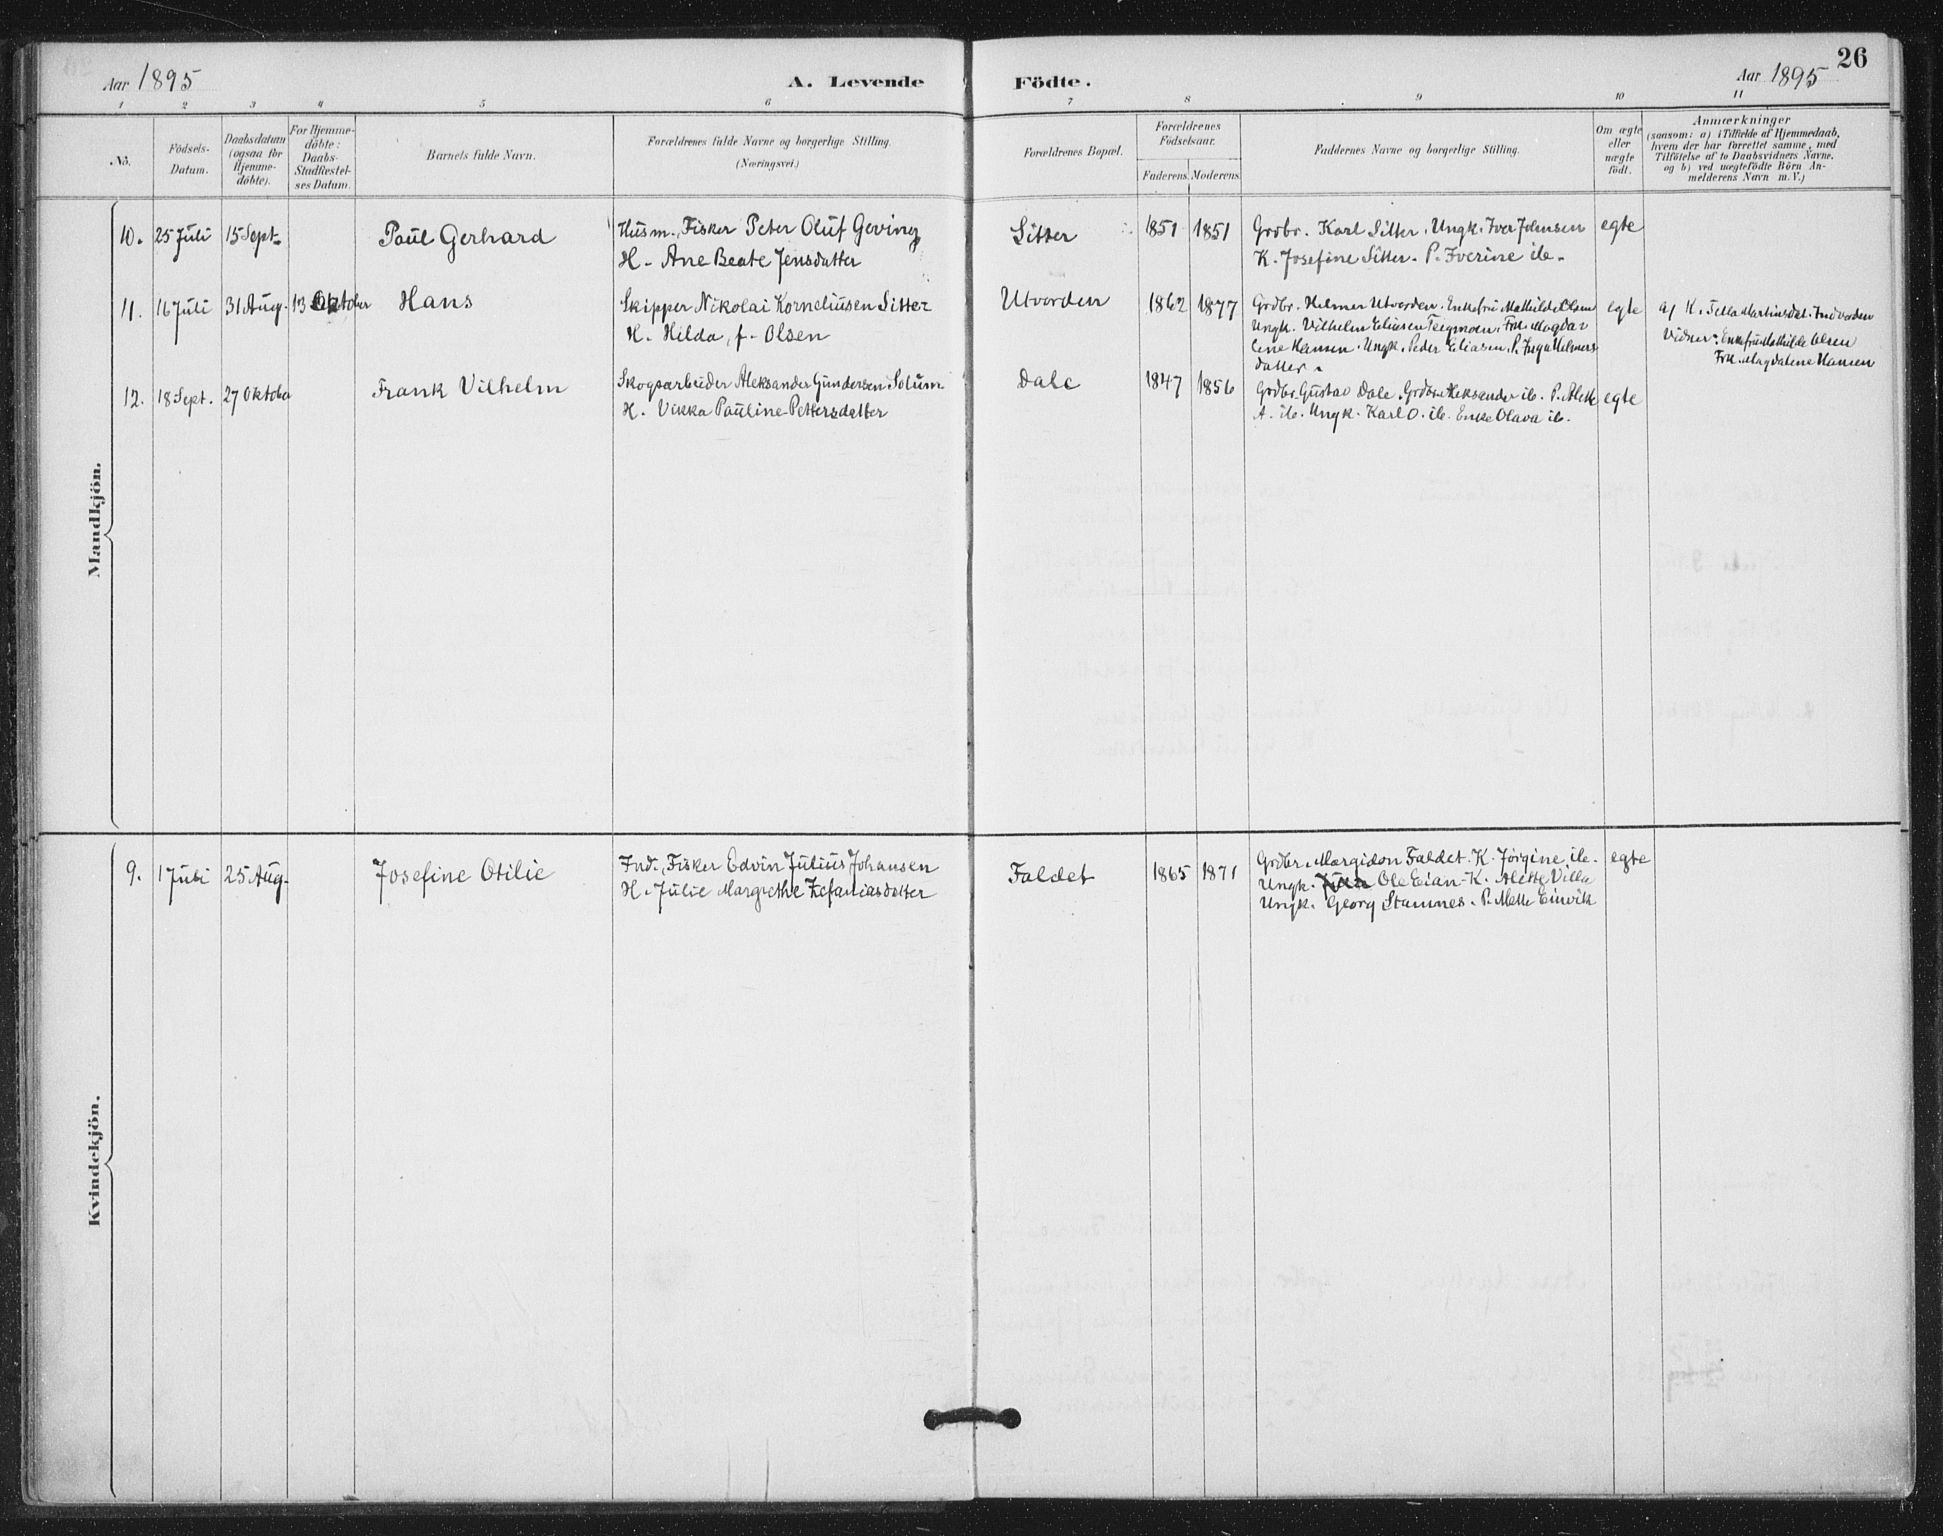 Aar 1895
A. Levende Födte.
Aar 1895
26
1 2 3 4 5 6 7 8 9 10 11
No.
Födsels-
Datum.
Daabsdatum
(ogsaa for
Hjemme-
döbte).
For Hjemme-
döbte:
Daabs-
Stadfæstel-
ses Datum.
Barnets fulde Navn.
Forældrenes fulde Navne og borgerlige Stilling.
(Næringsvei.)
Forældrenes Bopæl.
Forældrenes
Födselsaar.
Faderens. Moderens.
Faddernes Navne og borgerlige Stilling.
Om ægte
eller
uægte
födt.
Anmærkninger
(saasom: a) i Tilfælde af Hjemmedaab,
hvem der har forrettet samme, med
Tilföielse af to Daabsvidners Navne,
og b) ved uægtefödte Börn An-
melderens Navn m. V.)
Mandkjön.
10. 25 Juli 15 Sept. Paul Gerhard
Husm., Fisker Peter Oluf Geving
H. Ane Beate Jensdatter
Sitter 1851 1851
Grdbr. Karl Sitter. Ungk. Iver Johnsen
K. Josefine Sitter. P. Iverine ib.
egte
11. 16 Juli 31 Aug. 13 Oktober Hans
Skipper Nikolai Korneliusen Sitter
H. Hilda, f. Olsen
Utvorden 1862 1877
Grdbr. Helmer Utvorden. Enkefru Mathilde Olsen
Ungk. Vilhelm Eliasen Teigmoen. Frk. Magda-
lene Hansen. Ungk. Peder Eliasen. P. Inga Helmers
datter.
egte
a) K. Martinsdat. Indvorden
Vidner: Enkefru Mathilde Olsen
Frk. Magdalene Hansen
12. 18 Sept. 27 Oktober Frank Vilhelm
Skogsarbeider Aleksander Gundersen Solum
H. Vikka Pauline Pettersdatter
Dale 1847 1856
Grdbr. Gustav Dale. Grdbr. Aleksander ib. P. Alette
A. ib. Ungk. Karl O. ib. Enke Olava ib.
egte
Kvindekjön.
9. 1 Juli 25 Aug. Josefine Otilie
Ind., Fisker Edvin Julius Johansen
H. Julie Margrethe Zefaniasdatter
Faldet 1865 1871
Grdbr. Margidon Faldet. K. Jörgine ib.
Ungk. Ole Eian. K. Alette Villa
Ungk. Georg Stamnes. P. Mette Einvik
egte